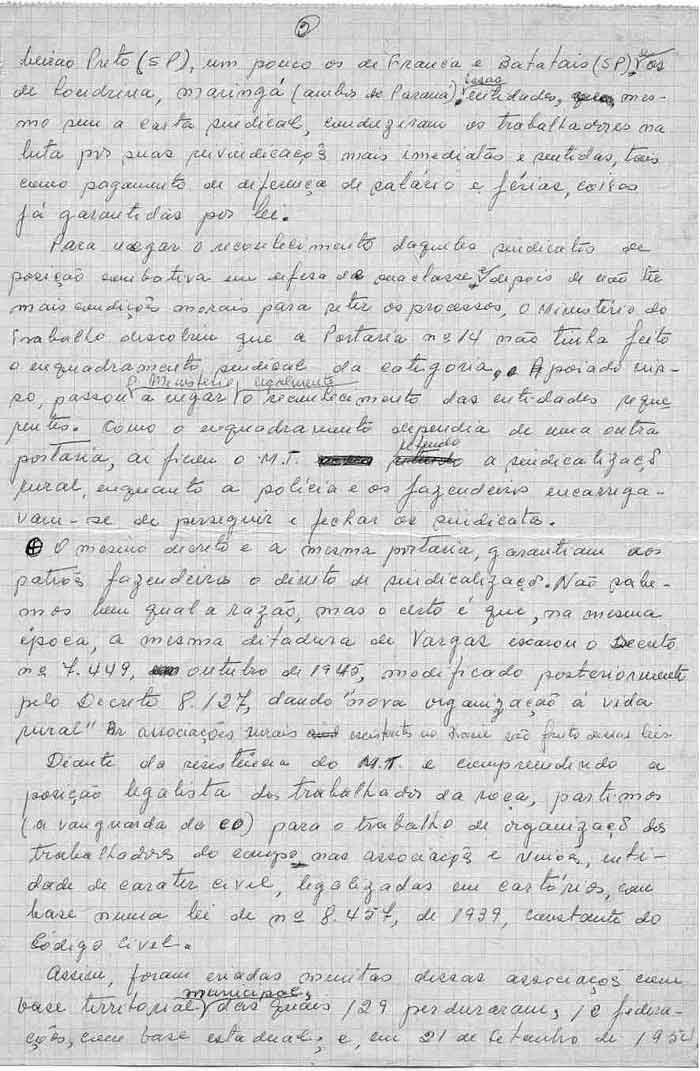 ②
beirão Preto (SP), um pouco os de Franca e Batatais (SP), e os
de Londrina, Maringá (ambos do Paraná). Essas entidades, mes-
mo sem a carta sindical, conduziram os trabalhadores na
luta por suas reivindicaçõs mais imediatas e sentidas, tais
como pagamento de diferença de salário e férias, coisas
já garantidas por lei.
Para negar o reconhecimento daqueles sindicatos de
posição combativa em defesa de sua classe, e depois de não ter
mais condições morais para reter os processos, o Ministério do
Trabalho descobriu que a Portaria nº 14 não tinha feito
o enquadramento sindical da categoria. Apoiado nis-
so, passou o Ministério a negar novamente o reconhecimento das entidades reque-
rentes. Como o enquadramento dependia de uma outra
portaria, aí ficou o M.T. retendo a sindicalizaçõ
rural, enquanto a polícia e os fazendeiros encarrega-
vam-se de perseguir e fechar os sindicatos.
⊕ O mesmo decreto e a mesma portaria, garantiam aos
patrõs fazendeiros o direito de sindicalizaçõ. Não sabe-
mos bem qual a razão, mas o certo é que, na mesma
época, a mesma ditadura de Vargas o Decreto
nº 7.449, outubro de 1945, modificado posteriormente
pelo Decreto 8.127, dando "nova organizaçõ à vida
rural" As associações rurais existentes no Brasil são fruto dessas leis
Diante da resistência do M.T. e compreendendo a
posição legalista dos trabalhadores da roça, partimos
(a vanguarda do) para o trabalho de organizaçõ dos
trabalhadores do campo nas associaçõs e Uniões, enti-
dade de carater civil, legalizadas em cartórios, com
base numa lei de nº 8.457, de 1939, constante do
Código Civil.
Assim, foram criadas muitas dessas associaçõs com
base territorial municipal, das quais 129 perduraram, 12 federa-
ções, com base estadual; e, em 21 de Setembro de 1954